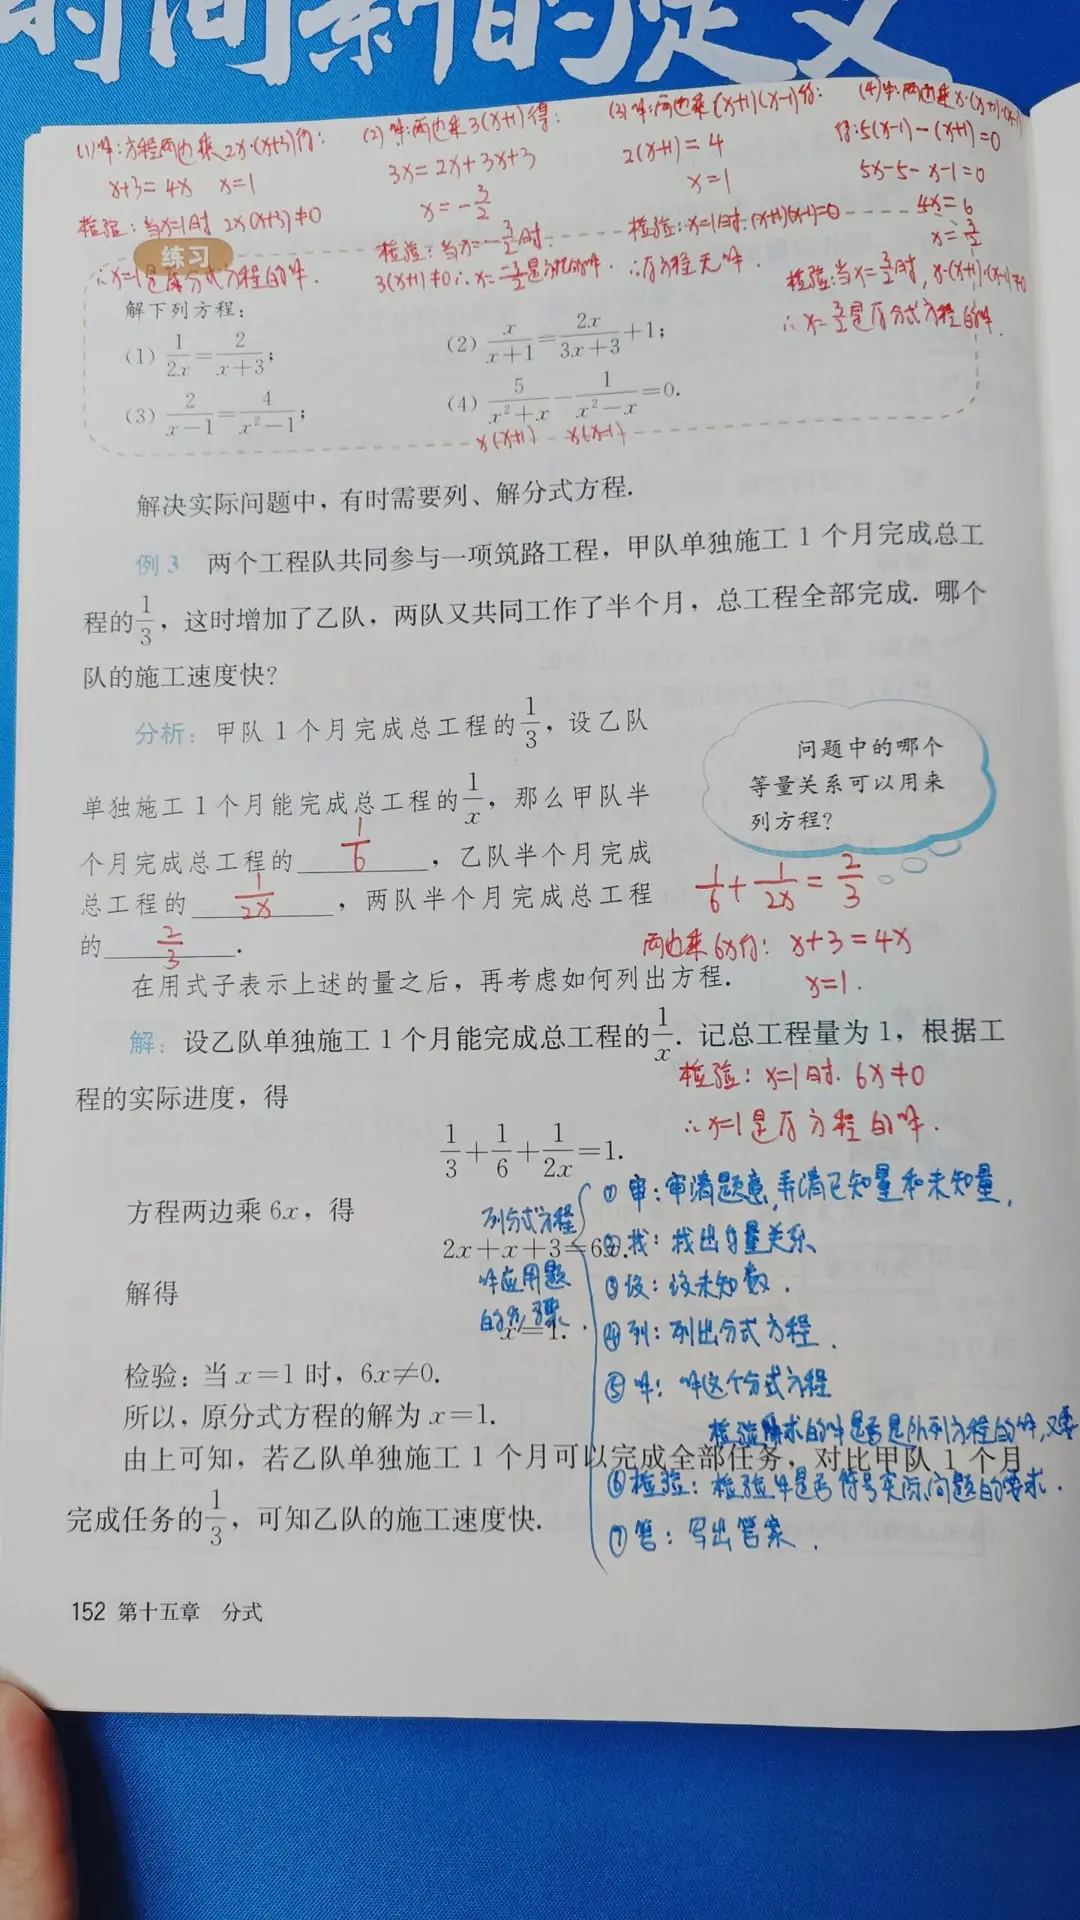 时间新的定义
(1)解:方程两边乘2x·(x+3)得:
x+3=4x x=1
检验:当x=1时 2x(x+3)≠0
∴x=1是原分式方程的解.
(2)解:两边乘3(x+1)得:
3x=2x+3x+3
x=-3/2
检验:当x=-3/2时.
3(x+1)≠0∴x=-3/2是方程的解.
(3)解:两边乘(x+1)(x-1)得:
2(x+1)=4
x=1
检验:x=1时.(x+1)(x-1)=0
∴原方程无解.
(4)解:两边乘x·(x+1)·(x-1)
得:5(x-1)-(x+1)=0
5x-5-x-1=0
4x=6
x=3/2
检验:当x=3/2时,x·(x+1)·(x-1)≠0
∴x=3/2是原分式方程的解.
练习
解下列方程:
(1) 1/2x=2/x+3;
(2) x/x+1=2x/3x+3+1;
(3) 2/x-1=4/x²-1;
(4) 5/x²+x-1/x²-x=0.
x(x+1) x(x-1)
解决实际问题中,有时需要列、解分式方程.
例3 两个工程队共同参与一项筑路工程,甲队单独施工1个月完成总工
程的1/3,这时增加了乙队,两队又共同工作了半个月,总工程全部完成.哪个
队的施工速度快?
分析:甲队1个月完成总工程的1/3,设乙队
单独施工1个月能完成总工程的1/x,那么甲队半
个月完成总工程的 1/6 ,乙队半个月完成
总工程的 1/2x ,两队半个月完成总工程
的 2/3 .
问题中的哪个
等量关系可以用来
列方程?
1/6+1/2x=2/3
两边乘6x得:x+3=4x
x=1.
在用式子表示上述的量之后,再考虑如何列出方程.
解:设乙队单独施工1个月能完成总工程的1/x.记总工程量为1,根据工
程的实际进度,得
检验:x=1时.6x≠0
∴x=1是原方程的解.
1/3+1/6+1/2x=1.
方程两边乘6x,得
2x+x+3=6x.
解得
x=1.
检验:当x=1时,6x≠0.
所以,原分式方程的解为x=1.
由上可知,若乙队单独施工1个月可以完成全部任务,对比甲队1个月
完成任务的1/3,可知乙队的施工速度快.
列分式方程
解应用题
的步骤.
①审:审清题意,弄清已知量和未知量.
②找:找出等量关系.
③设:设未知数.
④列:列出分式方程.
⑤解:解这个分式方程
检验所求的解是否是所列方程的解,又要
⑥检验:检验解是否符号实际问题的要求.
⑦答:写出答案.
152 第十五章 分式